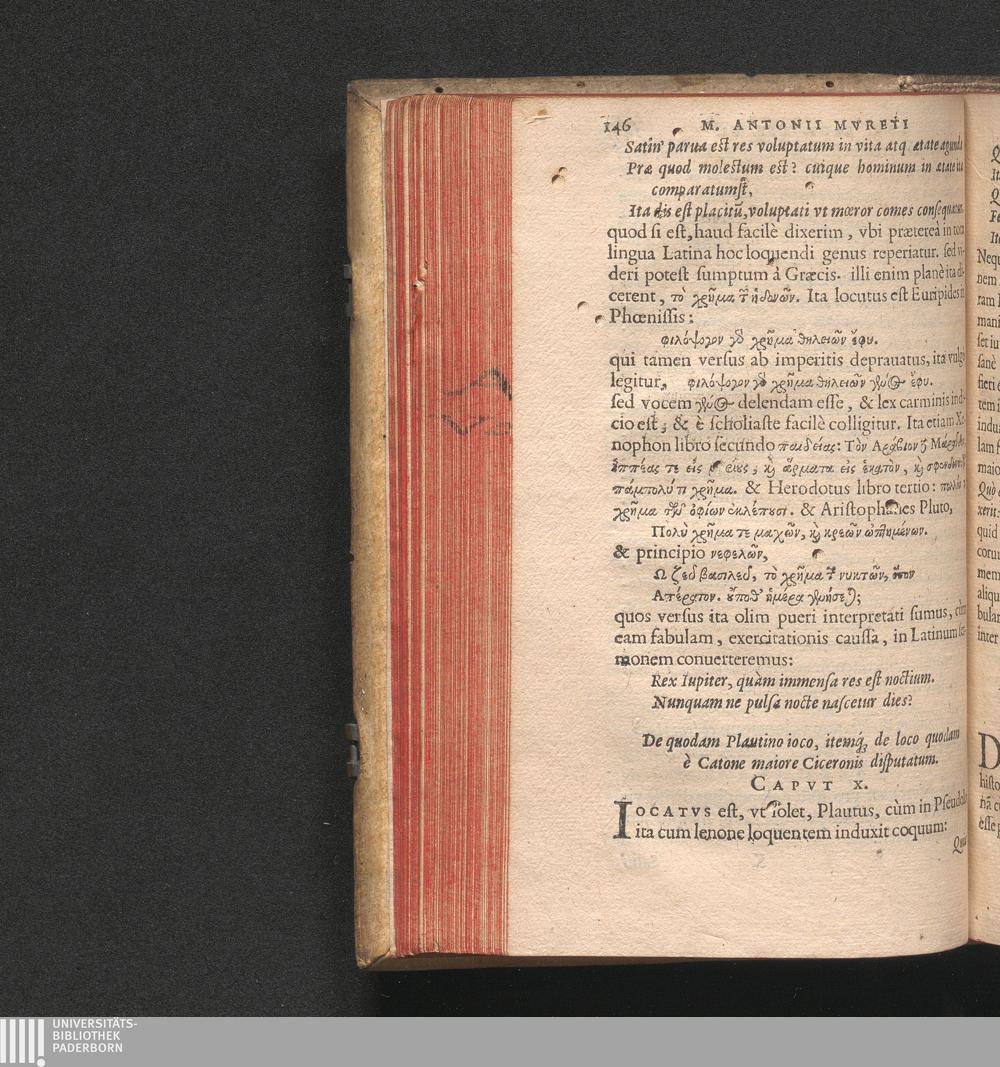 146 M. ANTONII MVRETI
Satin' parua est res voluptatum in vita atq. ætate agunda
Præ quod molestum est? cuique hominum in ætate ita
comparatumst,
Ita dis est placitū, voluptati vt mœror comes consequatur.
quod si est, haud facilè dixerim, vbi prætereà in tota
lingua Latina hoc loquendi genus reperiatur. sed vi-
deri potest sumptum à Græcis. illi enim planè ita di-
cerent, τὸ χρῆμα τ̃ ἡδονῶν. Ita locutus est Euripides in
Phœnissis:
φιλόψογον γδ χρῆμα θηλειῶν ἔφυ.
qui tamen versus ab imperitis deprauatus, ita vulgò
legitur, φιλόψογον γδ χρῆμα θηλειῶν γένος ἔφυ.
sed vocem γένος delendam esse, & lex carminis indi-
cio est, & è scholiaste facilè colligitur. Ita etiam Xe-
nophon libro secundo παιδείας: Τὸν Αράβιον
ἱππέας τε εἰς μυρίους, κỳ ἅρματα εἰς ἑκατὸν, κỳ σφενδονητῶν
πάμπολύ τι χρῆμα. & Herodotus libro tertio: πολλόν τι
χρῆμα τῶν ὀφίων & Aristophanes Pluto,
Πολὺ χρῆμα τεμαχῶν, κỳ κρεῶν ὠπτημένων.
& principio νεφελῶν,
Ω ζεῦ βασιλεῦ, τὸ χρῆμα τ̃ νυκτῶν, ὅσον
Απέρατον. οὐποθ' ἡμέρα γενήσεται;
quos versus ita olim pueri interpretati sumus, cùm
eam fabulam, exercitationis caussa, in Latinum ser-
monem conuerteremus:
Rex Iupiter, quàm immensa res est noctium.
Nunquam ne pulsa nocte nascetur dies?
De quodam Plautino ioco, itemq́; de loco quodam
è Catone maiore Ciceronis disputatum.
CAPVT X.
IOCATVS est, vt solet, Plautus, cùm in Pseudolo
ita cum lenone loquentem induxit coquum:
Qua
UNIVERSITÄTS-
BIBLIOTHEK
PADERBORN